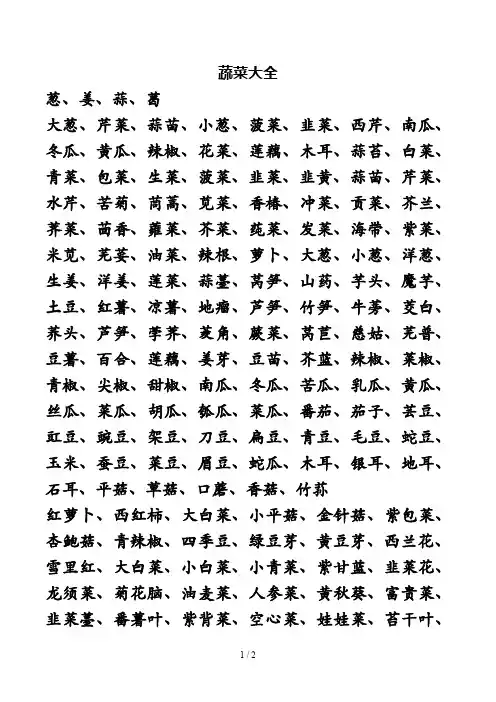 蔬菜大全
葱、姜、蒜、葛
大葱、芹菜、蒜苗、小葱、菠菜、韭菜、西芹、南瓜、
冬瓜、黄瓜、辣椒、花菜、莲藕、木耳、蒜苔、白菜、
青菜、包菜、生菜、菠菜、韭菜、韭黄、蒜苗、芹菜、
水芹、苦菊、茼蒿、苋菜、香椿、冲菜、贡菜、芥兰、
荠菜、茴香、蕹菜、芥菜、莼菜、发菜、海带、紫菜、
米苋、芫荽、油菜、辣根、萝卜、大葱、小葱、洋葱、
生姜、洋姜、莲菜、蒜薹、莴笋、山药、芋头、魔芋、
土豆、红薯、凉薯、地瘤、芦笋、竹笋、牛蒡、茭白、
荞头、芦笋、荸荠、菱角、蕨菜、莴苣、慈姑、芜普、
豆薯、百合、莲藕、姜芽、豆苗、芥蓝、辣椒、菜椒、
青椒、尖椒、甜椒、南瓜、冬瓜、苦瓜、乳瓜、黄瓜、
丝瓜、菜瓜、胡瓜、瓠瓜、菜瓜、番茄、茄子、芸豆、
豇豆、豌豆、架豆、刀豆、扁豆、青豆、毛豆、蛇豆、
玉米、蚕豆、菜豆、眉豆、蛇瓜、木耳、银耳、地耳、
石耳、平菇、草菇、口蘑、香菇、竹荪
红萝卜、西红柿、大白菜、小平菇、金针菇、紫包菜、
杏鲍菇、青辣椒、四季豆、绿豆芽、黄豆芽、西兰花、
雪里红、大白菜、小白菜、小青菜、紫甘蓝、韭菜花、
龙须菜、菊花脑、油麦菜、人参菜、黄秋葵、富贵菜、
韭菜薹、番薯叶、紫背菜、空心菜、娃娃菜、苔干叶、
1 / 2